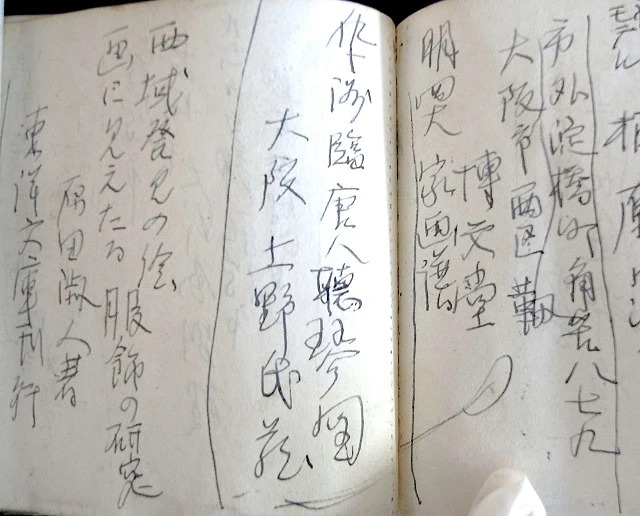 モデル
市外淀橋町角筈八七九
大阪市西区靱
博文堂
明四大家画譜
仇英臨唐人聴琴図
大阪上野氏蔵
西域発見の絵
画に見えたる服飾の研究
原田淑人著
東洋文庫刊行